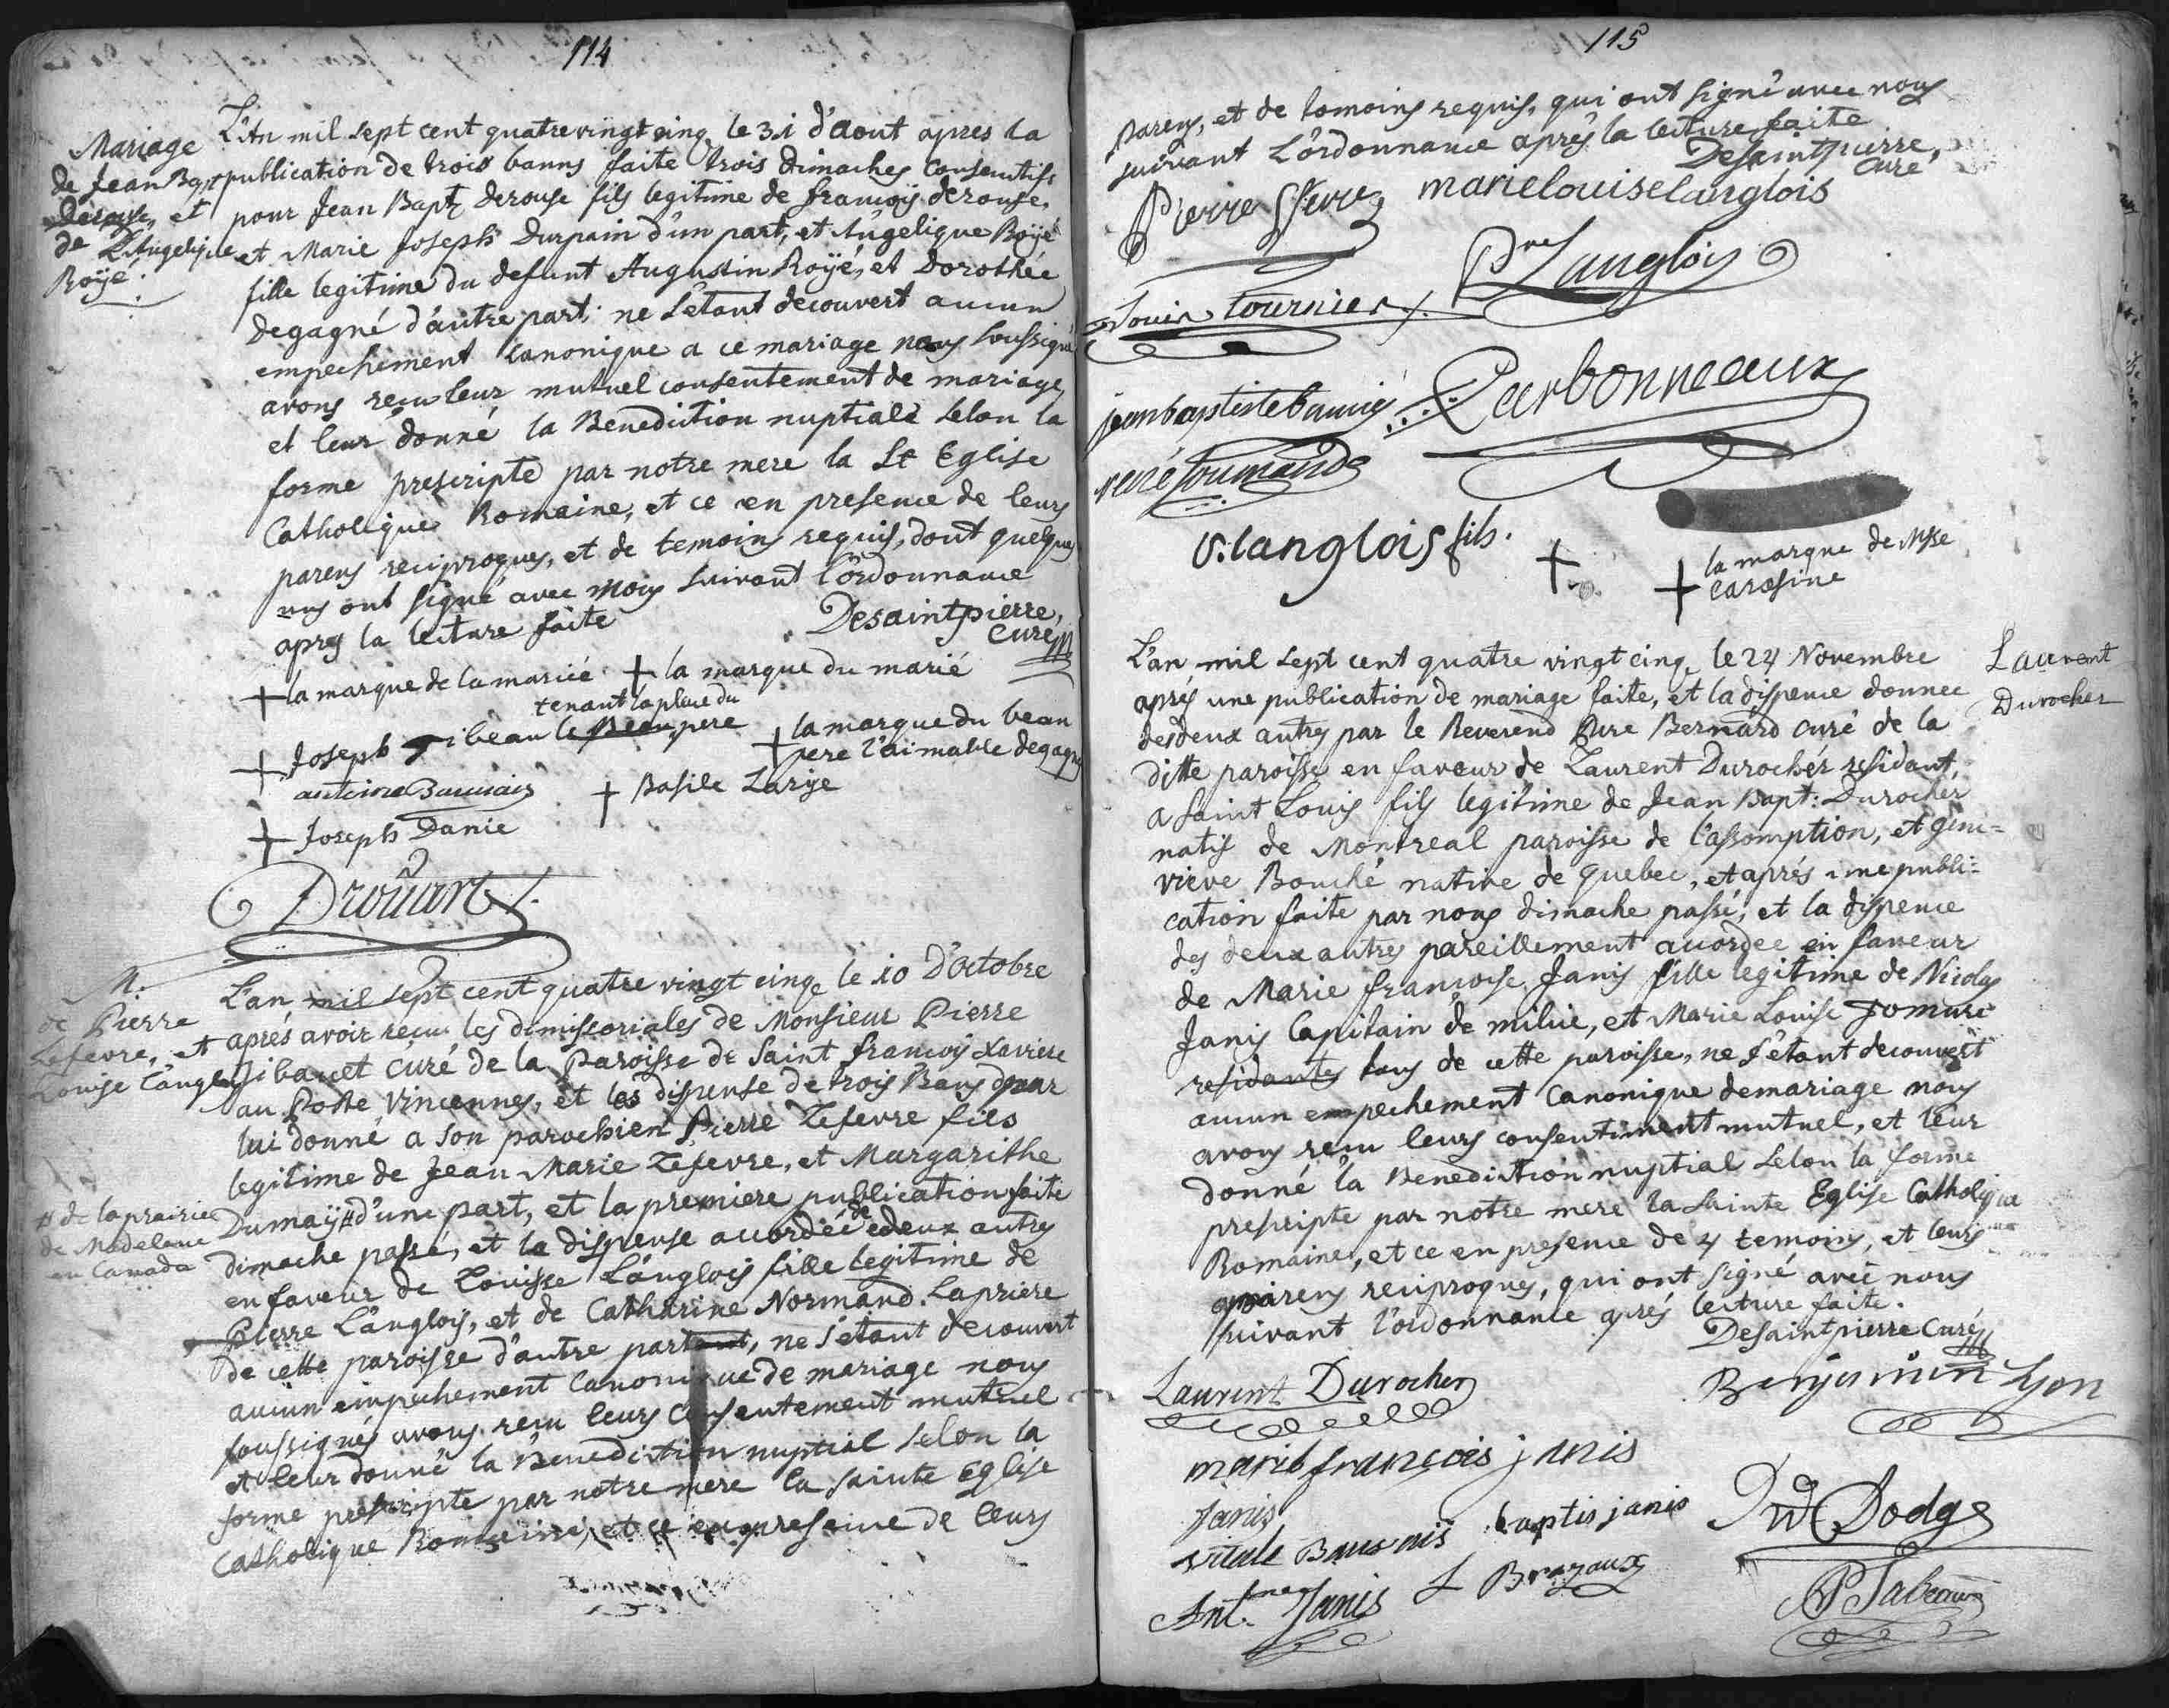 114
Mariage
de Jean Bapt
Derouse, et
de L'Angelique
Roÿé.
L'An mil sept cent quatrevingt cinq le 31 d'Aout apres la
publication de trois banns faite trois dimaches consecutifs
pour Jean Bapt derouse fils legitime de françois derouse,
et Marie Joseph Durpain d'un part, et Angelique Roÿé
fille legitime du defunt Augustin Roÿé, et Dorothée
degagné d'autre part; ne s'etant decouvert aucun
empechement canonique a ce mariage nous soussigné
avons recu leur mutuel consentement de mariage,
et leur donné la Benediction nuptiale selon la
forme prescripte par notre mere la Ste Eglise
Catholique Romaine, et ce en presence de leurs
parens reciproques, et de temoins requis, dont quelques
uns ont signé avec moy suivant l'ordonnance
apres la lecture faite
Desaintpierre,
Curé
+ la marque de la mariée + la marque du marié
tenant la place du
+ Joseph gibeau le Beaupere
+ la marque du beau
pere l'aimable degagné
antoine Bauvais + Basile Larije
+ Joseph Danie
Droüart
M.
de Pierre
Lefevre, et
Louise L'anglois
L'an mil sept cent quatre vingt cinq le 10 D'octobre
aprés avoir recu les dimissoriales de Monsieur Pierre
Gibauet curé de la Paroisse de Saint françois Xaviere
au Poste Vincennes, et les dispense de trois Bans pour
lui donné a son parochien Pierre Lefevre fils
legitime de Jean Marie Lefevre, et Margarithe
# de laprairie
de Madelaine
en Canada
Dumaÿ # d'une part, et la premiere publication faite
dimache passé, et la dispense accordée de deux autres
en faveur de Louisse L'anglois fille legitime de
Pierre L'anglois, et de Catharine Normand Lapriere
de cette paroisse d'autre part, ne s'etant decouvert
aucun empechement canonique de mariage nous
soussignés avons recu leurs consentement mutuel
et leur donné la Benediction nuptial selon la
forme prescripte par notre mere la sainte Eglise
Catholique Romaine, et ce en presence de leurs
115
parens, et de tomoins requis, qui ont signé avec nous
suivant L'ordonnance aprés la lecture faite
Desaintpierre,
Curé
Pierre marielouiselanglois
Pre Langlois
Louis tournier
jeanbaptiste Carbonneaux
rené soumande
v. langlois fils.
+ + la marque de Mse
Carosine
Laurent
Durocher
L'an mil sept cent quatre vingt cinq le 24 Novembre
aprés une publication de mariage faite, et la dispence donnee
desdeux autres par le Reverend Pere Bernard curé de la
ditte paroisse en faveur de Laurent Durocher residant
a Saint Louis fils legitime de Jean Bapt: Durocher
natif de Montreal paroisse de l'assomption, et gene=
vieve Bouché native de quebec, et aprés une publi=
cation faite par nous dimache passé, et la dispence
des deux autres pareillement accordee en faveur
de Marie françoise Janis fille legitime de Nicolas
Janis Capitain de milice, et Marie Louise
residantes tous de cette paroisse, ne s'étant decouvert
aucun empechement Canonique demariage nous
avons recu leurs consentiment mutuel, et leur
donné la Benediction nuptial selon la forme
prescripte par notre mere la sainte Eglise Catholique
Romaine, et ce en presence de 4 temoins, et leurs
parens reciproques, qui ont signé avec nous
suivant l'ordonnance aprés lecture faite.
Desaintpierre Curé
Laurent Durocher Benjamin Lyon
marie françois janis
Janis
vitale Bauvais baptis janis
Dodge
Ant. Janis